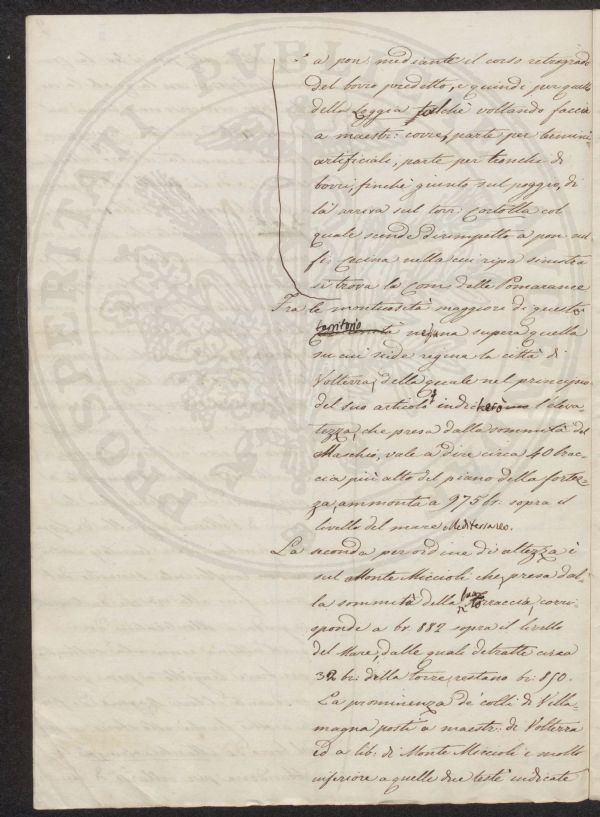 a pon: mediante il corso retrogrado
del borro predetto, e quindi per quello
della Loggia talchè voltando faccia
a maestr: corre, parte per termini
artificiali, parte per tronchi di
borri, finchè giunto sul poggio, di
là arriva sul torr: Cortolla col
quale scende dirimpetto a pon: nel
fi: Cecina nella cui ripa sinistra
si trova la Com: delle Pomarance
Tra le montuosità maggiore di questo
territorio niuna supera quella
su cui siede regina la città di
Volterra, della quale nel principio
del suo articolo indicherò l'eleva-
tezza, che presa dalla sommità del
Maschio, vale a dire circa 40 brac-
cia più alto del piano della fortez-
za, ammonta a 975 br: sopra il
livello del mare Mediterraneo.
La seconda per ordine di altezza è
sul Monte Miccioli che, presa dal-
la sommità della sua torraccia, corri-
sponde a br: 882 sopra il livello
del Mare, dalle quali detratte circa
32 br: della torre, restano br: 850.
La prominenza de' colli di Villa-
magna posti a maestr: di Volterra
ed a lib: di Monte Miccioli è molto
inferiore a quelle due testè indicate
PROSPERITATI PUBLICAE